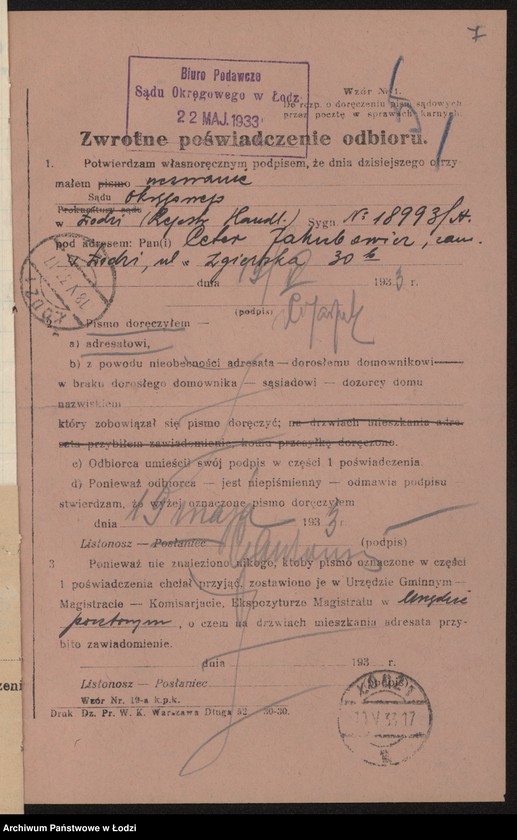 7
Biuro Podawcze
Sądu Okręgowego w Łodz
22 MAJ. 1933
Wzór Nr. 1.
Do rozp. o doręczeniu pism sądowych
przez pocztę w sprawach karnych.
Zwrotne poświadczenie odbioru.
1. Potwierdzam własnoręcznym podpisem, że dnia dzisiejszego otrzy-
małem pismo wezwanie
Sądu Okręgowego
Prokuratury sądu
w Łodzi (Rejestr Handl.) Sygn. № 18993/A.
pod adresem: Pan(i) Peter Jakubowicz, zam.
w Łodzi, ul. Zgierska 30
dnia 19/V 1933 r.
(podpis)
ŁÓDŹ 1
18.V.33.17
Pismo doręczyłem —
a) adresatowi,
b) z powodu nieobecności adresata — dorosłemu domownikowi
w braku dorosłego domownika — sąsiadowi — dozorcy domu
nazwiskiem
który zobowiązał się pismo doręczyć; na drzwiach mieszkania adre-
sata przybiłem zawiadomienie, komu przesyłkę doręczono.
c) Odbiorca umieścił swój podpis w części 1 poświadczenia.
d) Ponieważ odbiorca — jest niepiśmienny — odmawia podpisu —
stwierdzam, że wyżej oznaczone pismo doręczyłem
dnia 19 maja 1933 r.
Listonosz — Posłaniec (podpis)
3 Ponieważ nie znaleziono nikogo, ktoby pismo oznaczone w części
1 poświadczenia chciał przyjąć, zostawiono je w Urzędzie Gminnym —
Magistracie — Komisarjacie, Ekspozyturze Magistratu w Urzędzie
pocztowym, o czem na drzwiach mieszkania adresata przy-
bito zawiadomienie.
dnia 193 r.
Listonosz — Posłaniec (podpis)
Wzór Nr. 19-a k.p.k.
Druk Dz. Pr. W. K. Warszawa Długa 52 30-30.
ŁÓDŹ 1
19.V.33.17
Archiwum Państwowe w Łodzi